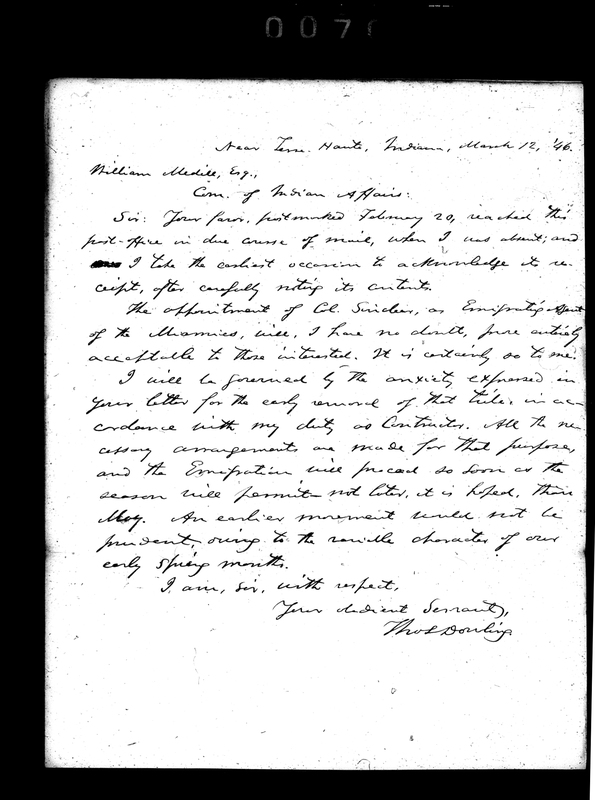 007
Near Terre Haute, Indiana, March 12, '46.
William Medill, Esq.,
Com. of Indian Affairs:
Sir: Your favor, postmarked February 20, reached this
post-office in due course of mail, when I was absent; and
I take the earliest occasion to acknowledge its re-
ceipt, after carefully noting its contents.
The appointment of Col. Sinclear, as Emigrating Agent
of the Miamies, will, I have no doubt, prove entirely
acceptable to those interested. It is certainly so to me.
I will be governed by the anxiety expressed in
your letter for the early removal of that tribe, in ac-
cordance with my duty as Contractor. All the ne-
cessary arrangements are made for that purpose,
and the Emigration will proceed so soon as the
season will permit — not later, it is hoped, than
May. An earlier movement would not be
prudent, owing to the variable character of our
early spring months.
I am, sir, with respect,
Your obedient Servant,
Thos Dowling